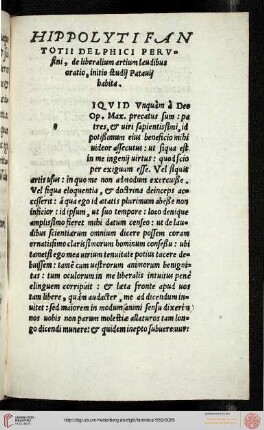 HIPPOLYTI FAN
TOTII DELPHICI PERV-
sini, de liberalium artium laudibus
oratio, initio studij Patauij
habita.
IQVID Vnquàm à Deo
Op. Max. precatus sum: pa
tres, & uiri sapientissimi, id
potissimum eius beneficio mihi
uideor assecutus: ut siqua est
in me ingenij uirtus: quod scio
per exiguum esse. Vel siquis
artis usus: in quo me non admodum exercuisse.
Vel siqua eloquentia, & doctrina deinceps ac-
cesserit: à qua ego id ætatis plurimum abesse non
inficior: id ipsum, ut suo tempore: loco denique
amplissimo fieret mihi datum censeo: ut de lau-
dibus scientiarum omnium dicere possem coram
ornatissimo clarissimorum hominum consessu: ubi
tametsi ego mea uirium tenuitate potius tacere de-
buissem: tamē cum uestrorum animorum benigni-
tas: tum oculorum in me liberalis intuitus penè
elinguem corripuit: & læta fronte apud uos
tam libere, quàm audacter, me ad dicendum in-
uitet: sed maiorem in modum animi sensu dixerī:
nos uobis non parum molestiæ allaturos tam lon-
go dicendi munere: & quidem inepto subuereamur: